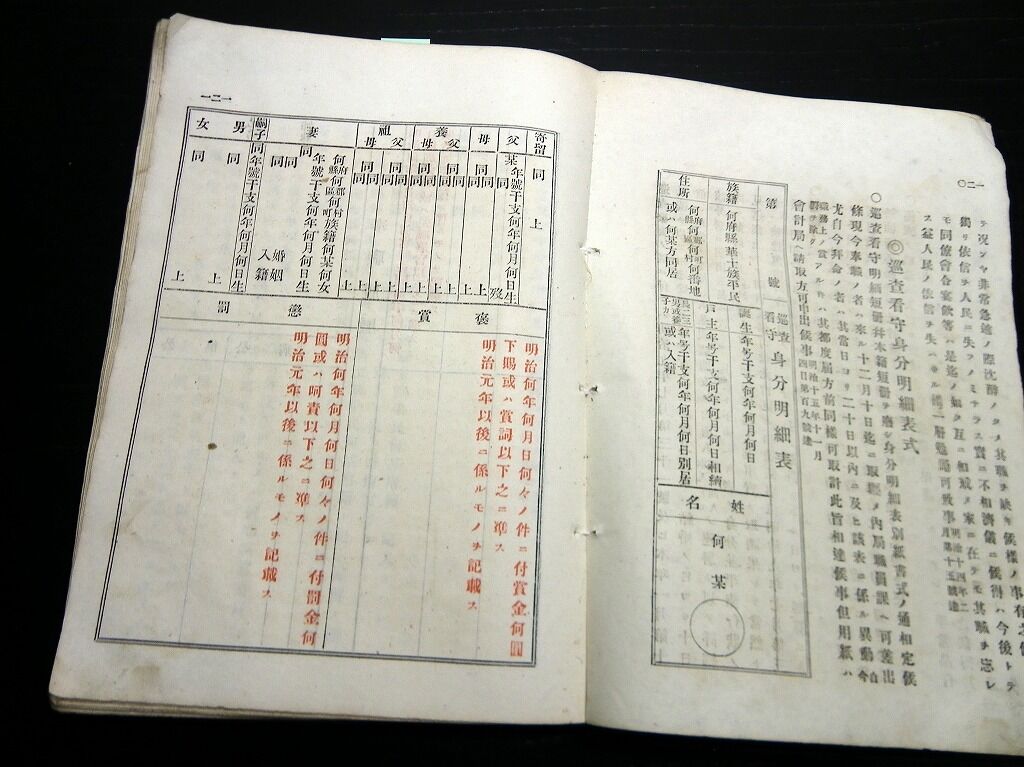 一二〇
テ況ンヤ非常急遽ノ際沈酔ノタメ其職ヲ缺キ候様ノ事有之候
獨リ依信ヲ人民ニ失フノミナラス實ニ不相濟儀ニ候得ハ今後トテ
モ同僚會合宴飲等ハ是迄ノ如ク互ニ相戒メ家ニ在テモ其職ヲ忘レ
ス益人民ノ依信ヲ失ハサル様
明治十四年二
月第十五號達
◎巡査看守身分明細表式
○巡査看守明細短册幷本籍短册ヲ廢シ身分明細表別紙書式ノ通相定候
條現今奉職ノ者ハ來ル十二月十日迄ニ取纒メ內局職員課ヘ可差出
尤自今拜命ノ者ハ其當日ヨリ二十日以內ニ及ヒ該表ニ係ル異動
職務上ノ賞
罰ヲ除ク
アル節ハ其都度屆方前同樣可取計此旨相達候事但用紙ハ
會計局ヘ請取方可申出候事
明治十五年十一月
四日第百九號達
第 號
巡査
看守
身分明細表
族籍
何府縣華士族平民
誕生年号干支何年何月何日
住所
何府縣何郡區何町村何番地
或ハ何某方同居
戸主年号干支何年何月何日相續
二三男或養子カ
年号干支何年何月何日別居
或ハ入籍
姓名
何某
一二一
寄留
同上
父
某
年號干支何年何月何日生
歿
母
同
同
上
上
養
父
母
同
同
上
上
祖
父
母
同
同
上
上
妻
何府縣何郡區何町村族籍何某何女
同
年號干支何年何月何日生
同
同
婚姻
入籍
上
嗣子
同
年號干支何年何月何日生
男
同
上
女
同
上
褒賞
明治何年何月何日何々ノ件ニ付賞金何圓
下賜或ハ賞詞以下之ニ準ス
明治元年以後ニ係ルモノヲ記載ス
懲罰
明治何年何月何日何々ノ件ニ付罰金何
圓或ハ呵責以下之ニ準ス
明治元年以後ニ係ルモノヲ記載ス